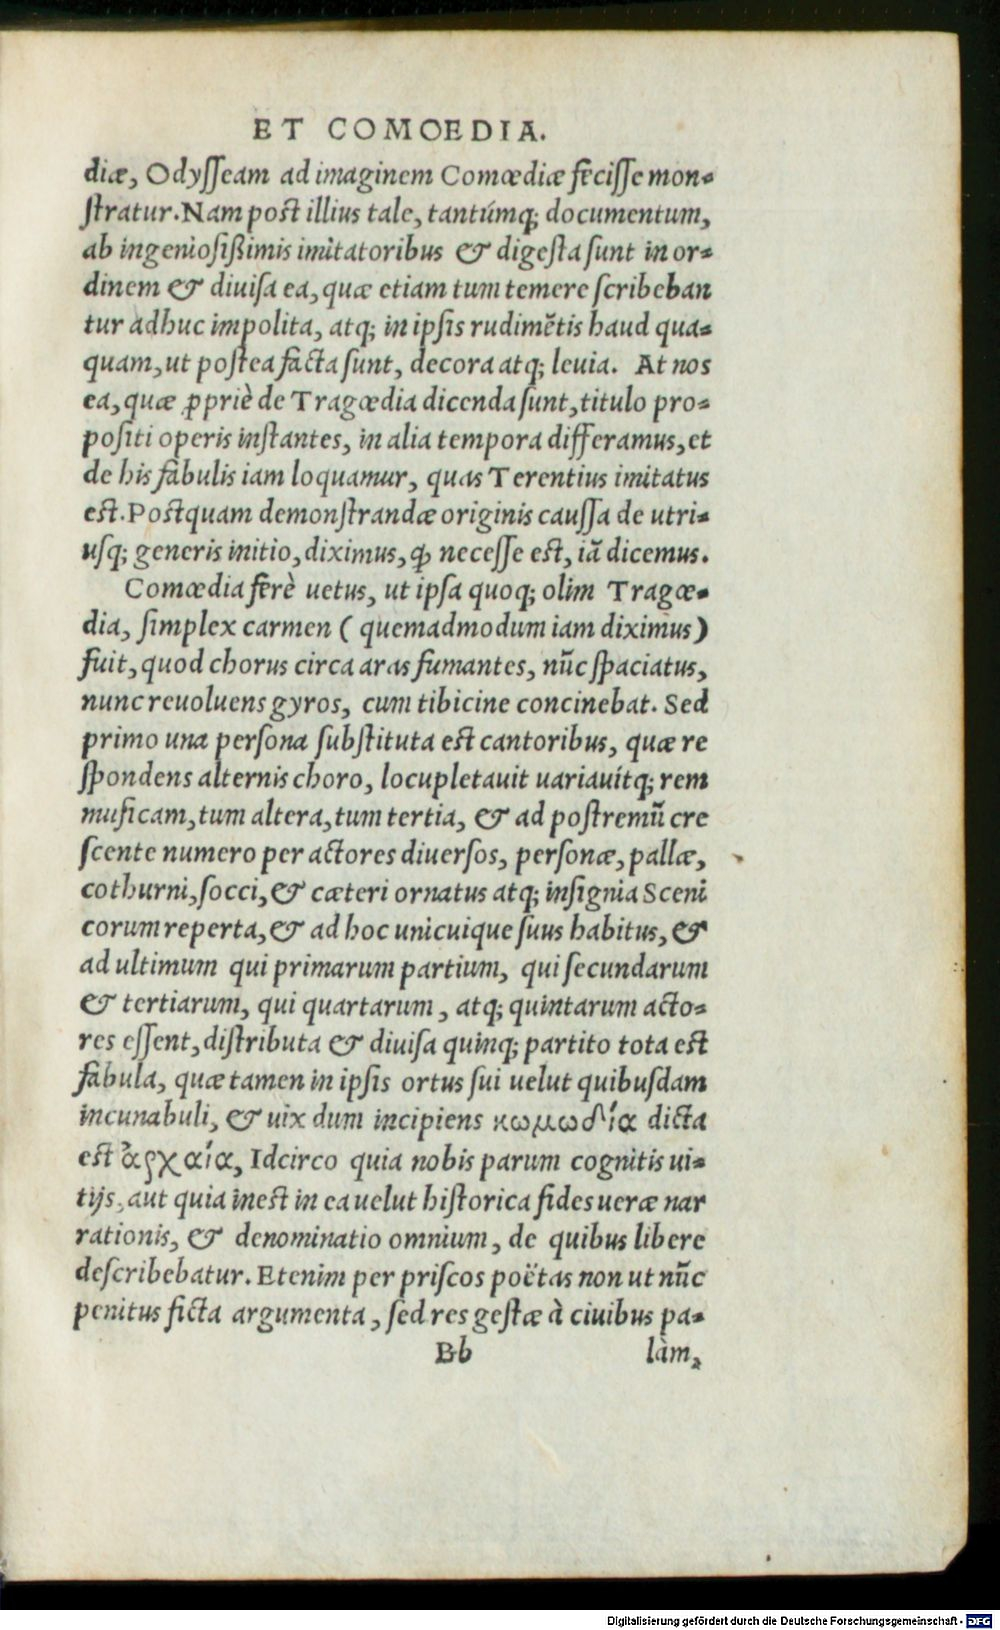 ET COMOEDIA.
diæ, Odyſſeam ad imaginem Comœdiæ feciſſe mon-
ſtratur. Nam post illius tale, tantúmq; documentum,
ab ingenioſißimis imitatoribus & digeſta ſunt in or-
dinem & diuiſa ea, quæ etiam tum temere ſcribeban
tur adhuc impolita, atq; in ipſis rudimẽtis haud qua-
quam, ut poſtea facta ſunt, decora atq; leuia. At nos
ea, quæ ꝓpriè de Tragœdia dicenda ſunt, titulo pro-
poſiti operis inſtantes, in alia tempora differamus, et
de his fabulis iam loquamur, quas Terentius imitatus
est. Postquam demonſtrandæ originis cauſſa de utri-
uſq; generis initio, diximus, ꝙ neceſſe est, iã dicemus.
Comœdia ferè uetus, ut ipſa quoq; olim Tragœ-
dia, ſimplex carmen ( quemadmodum iam diximus)
fuit, quod chorus circa aras fumantes, nũc ſpaciatus,
nunc reuoluens gyros, cum tibicine concinebat. Sed
primo una perſona ſubſtituta est cantoribus, quæ re
ſpondens alternis choro, locupletauit uariauítq; rem
muſicam, tum altera, tum tertia, & ad poſtremũ cre
ſcente numero per actores diuerſos, perſonæ, pallæ,
cothurni, ſocci, & cæteri ornatus atq; inſignia Sceni
corum reperta, & ad hoc unicuique ſuus habitus, &
ad ultimum qui primarum partium, qui ſecundarum
& tertiarum, qui quartarum, atq; quintarum acto-
res eſſent, diſtributa & diuiſa quinq; partito tota est
fabula, quæ tamen in ipſis ortus ſui uelut quibuſdam
incunabuli, & uix dum incipiens κωμωδία dicta
est ἀρχαία, Idcirco quia nobis parum cognitis ui-
tijs, aut quia inest in ea uelut hiſtorica fides ueræ nar
rationis, & denominatio omnium, de quibus libere
deſcribebatur. Etenim per priſcos poëtas non ut nũc
penitus ficta argumenta, ſed res geſtæ à ciuibus pa-
Bb làm,
Digitalisierung gefördert durch die Deutsche Forschungsgemeinschaft - DFG